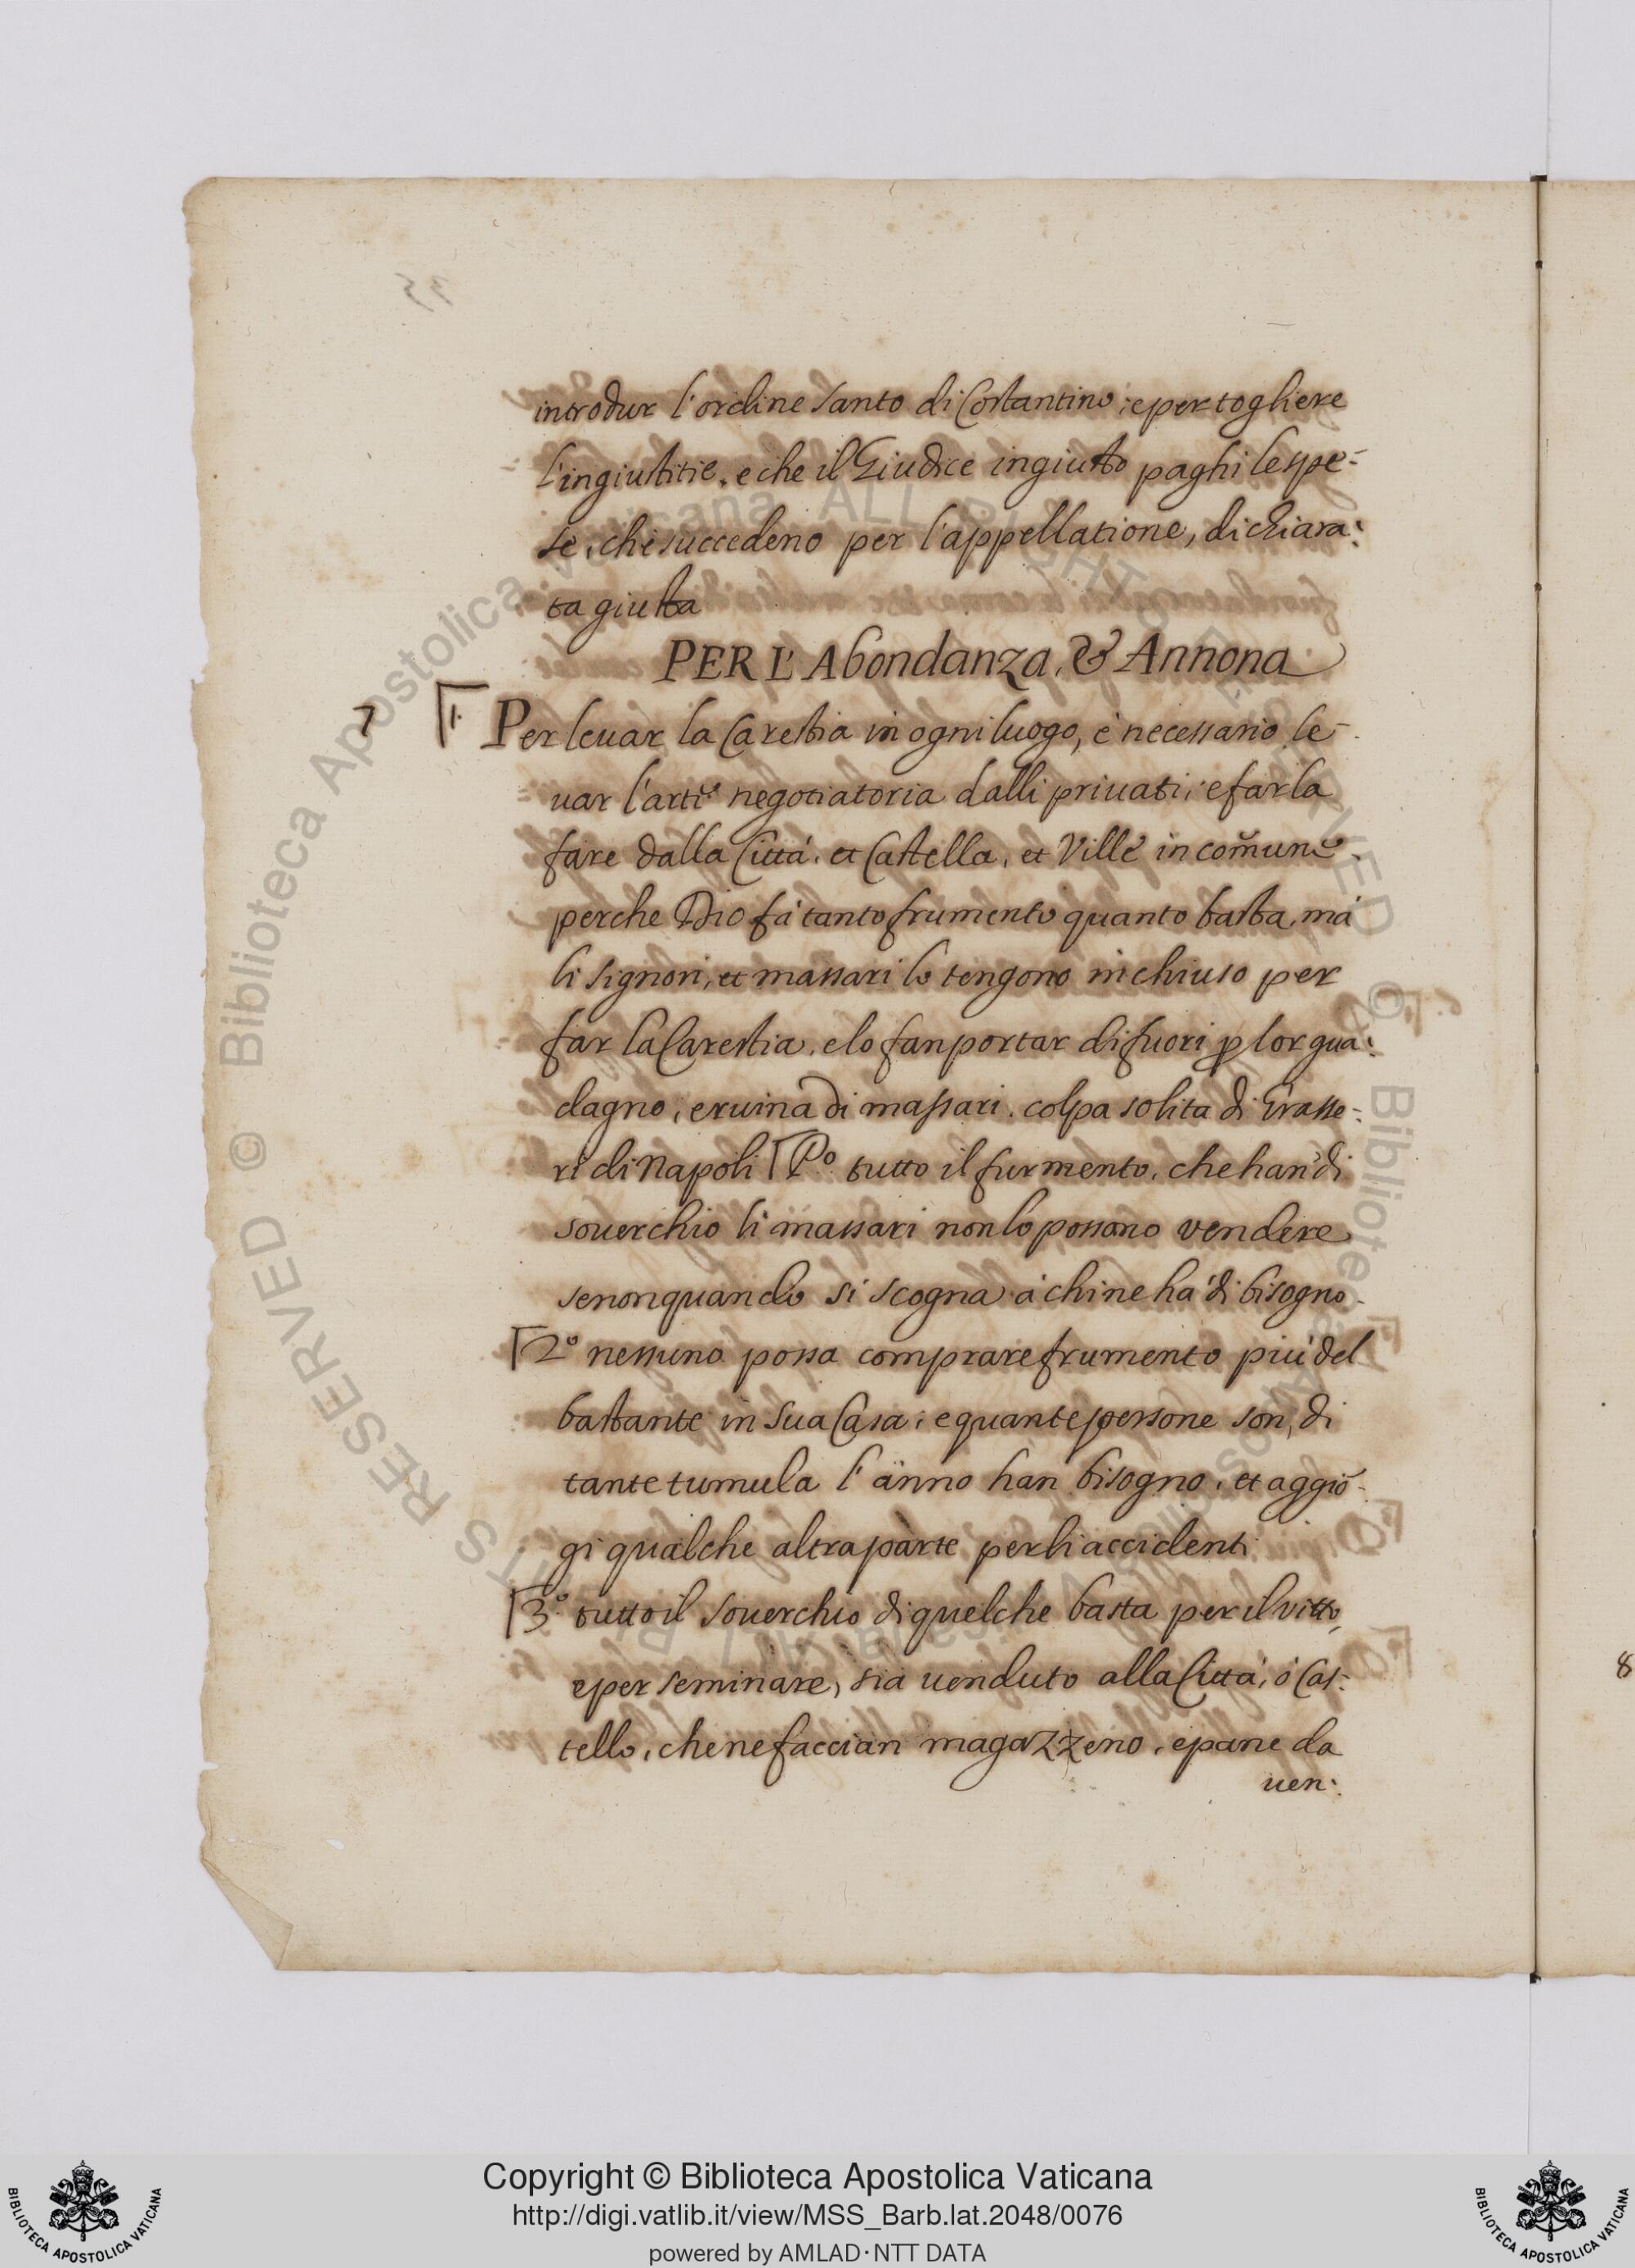 introdur l'ordine santo di Costantino; e per togliere
l'ingiustitie, e che il Giudice ingiusto paghi le spe-
se, che succedeno per l'appellatione, dichiara:
ta giusta
PER L'Abondanza, & Annona
7 1. Per levar la Carestia in ogni luogo, è necessario le-
uar l'arte negotiatoria dalli priuati; e farla
fare dalla Città, et Castella, et Ville in comũne
perche Dio fà tanto frumento quanto basta, mà
li signori, et massari lo tengono inchiuso per
far la Carestia, e lo fan portar di fuori ꝑ lor gua:
dagno, e ruina di massari, colpa solita di Grasse-
ri di Napoli P.o tutto il furmento, che han di
souerchio li massari non lo possono vendere
se non quando si scogna à chi ne hà di bisogno
2.o nessuno possa comprare frumento più del
bastante in sua Casa; e quante persone son, di
tante tumula l'anno han bisogno, et aggiõ-
gi qualche altra parte per li accidenti
3.o tutto il souerchio di quel che basta per il vitto,
e per seminare, sia uenduto alla Città, ò Cas-
tello, che ne faccian magazzeno, e pane da
uen:
35
8
© Biblioteca Apostolica Vaticana ALL RIGHTS RESERVED
Copyright © Biblioteca Apostolica Vaticana
http://digi.vatlib.it/view/MSS_Barb.lat.2048/0076
powered by AMLAD·NTT DATA
BIBLIOTECA APOSTOLICA VATICANA
BIBLIOTECA APOSTOLICA VATICANA